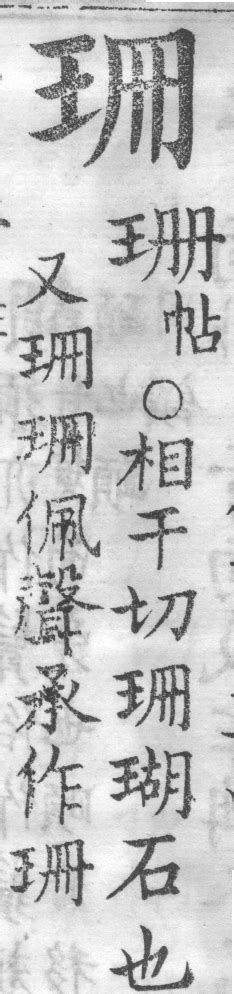 珊
珊帖○相干切珊瑚石也
又珊珊佩聲承作珊